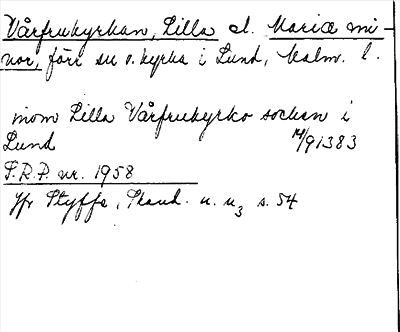 Vårfrukyrkan, Lilla el. Mariæ mi-
nor, förr sn o. kyrka i Lund, Malm. l.
inom Lilla Vårfrukyrko socken i
Lund 14/9 1383
S.R.P. nr. 1958
Jfr Styffe, Skand. u. u3 s. 54